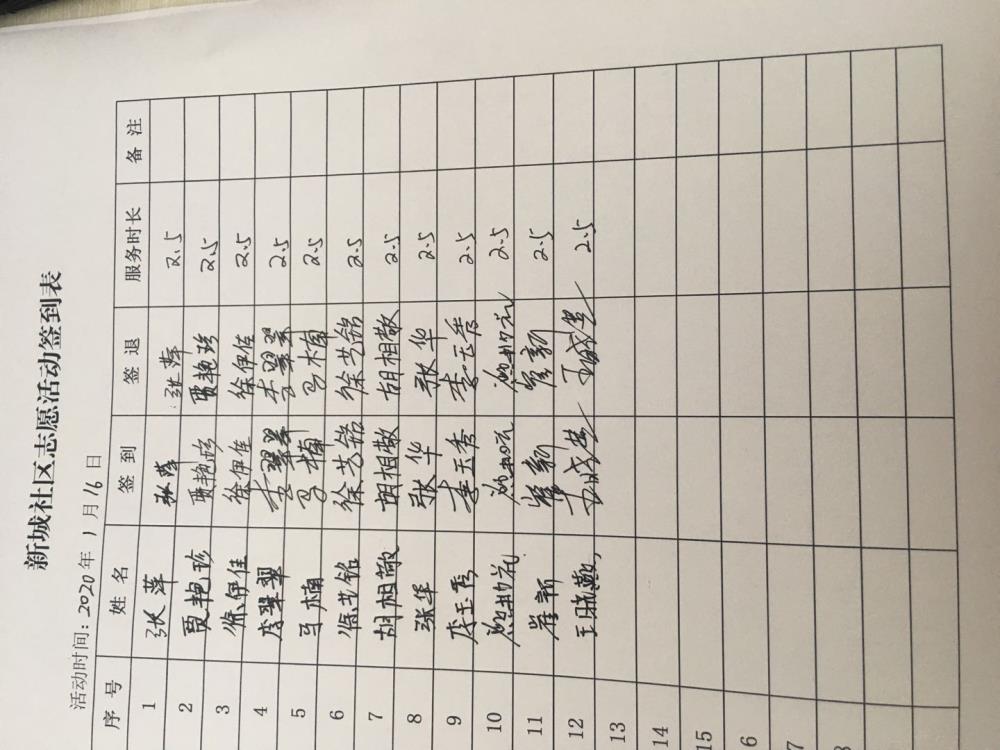 新城社区志愿活动签到表
活动时间：2020年1月16日
序号 姓名 签到 签退 服务时长 备注
1 张萍 张萍 张萍 2.5
2 贾艳珍 贾艳珍 贾艳珍 2.5
3 徐伊佳 徐伊佳 徐伊佳 2.5
4 李翠翠 李翠翠 李翠翠 2.5
5 马楠 马楠 马楠 2.5
6 徐艺铭 徐艺铭 徐艺铭 2.5
7 胡相敬 胡相敬 胡相敬 2.5
8 张华 张华 张华 2.5
9 李玉秀 李玉秀 李玉秀 2.5
10 2.5
11 崔新 崔新 崔新 2.5
12 2.5
13
14
15
6
7
8